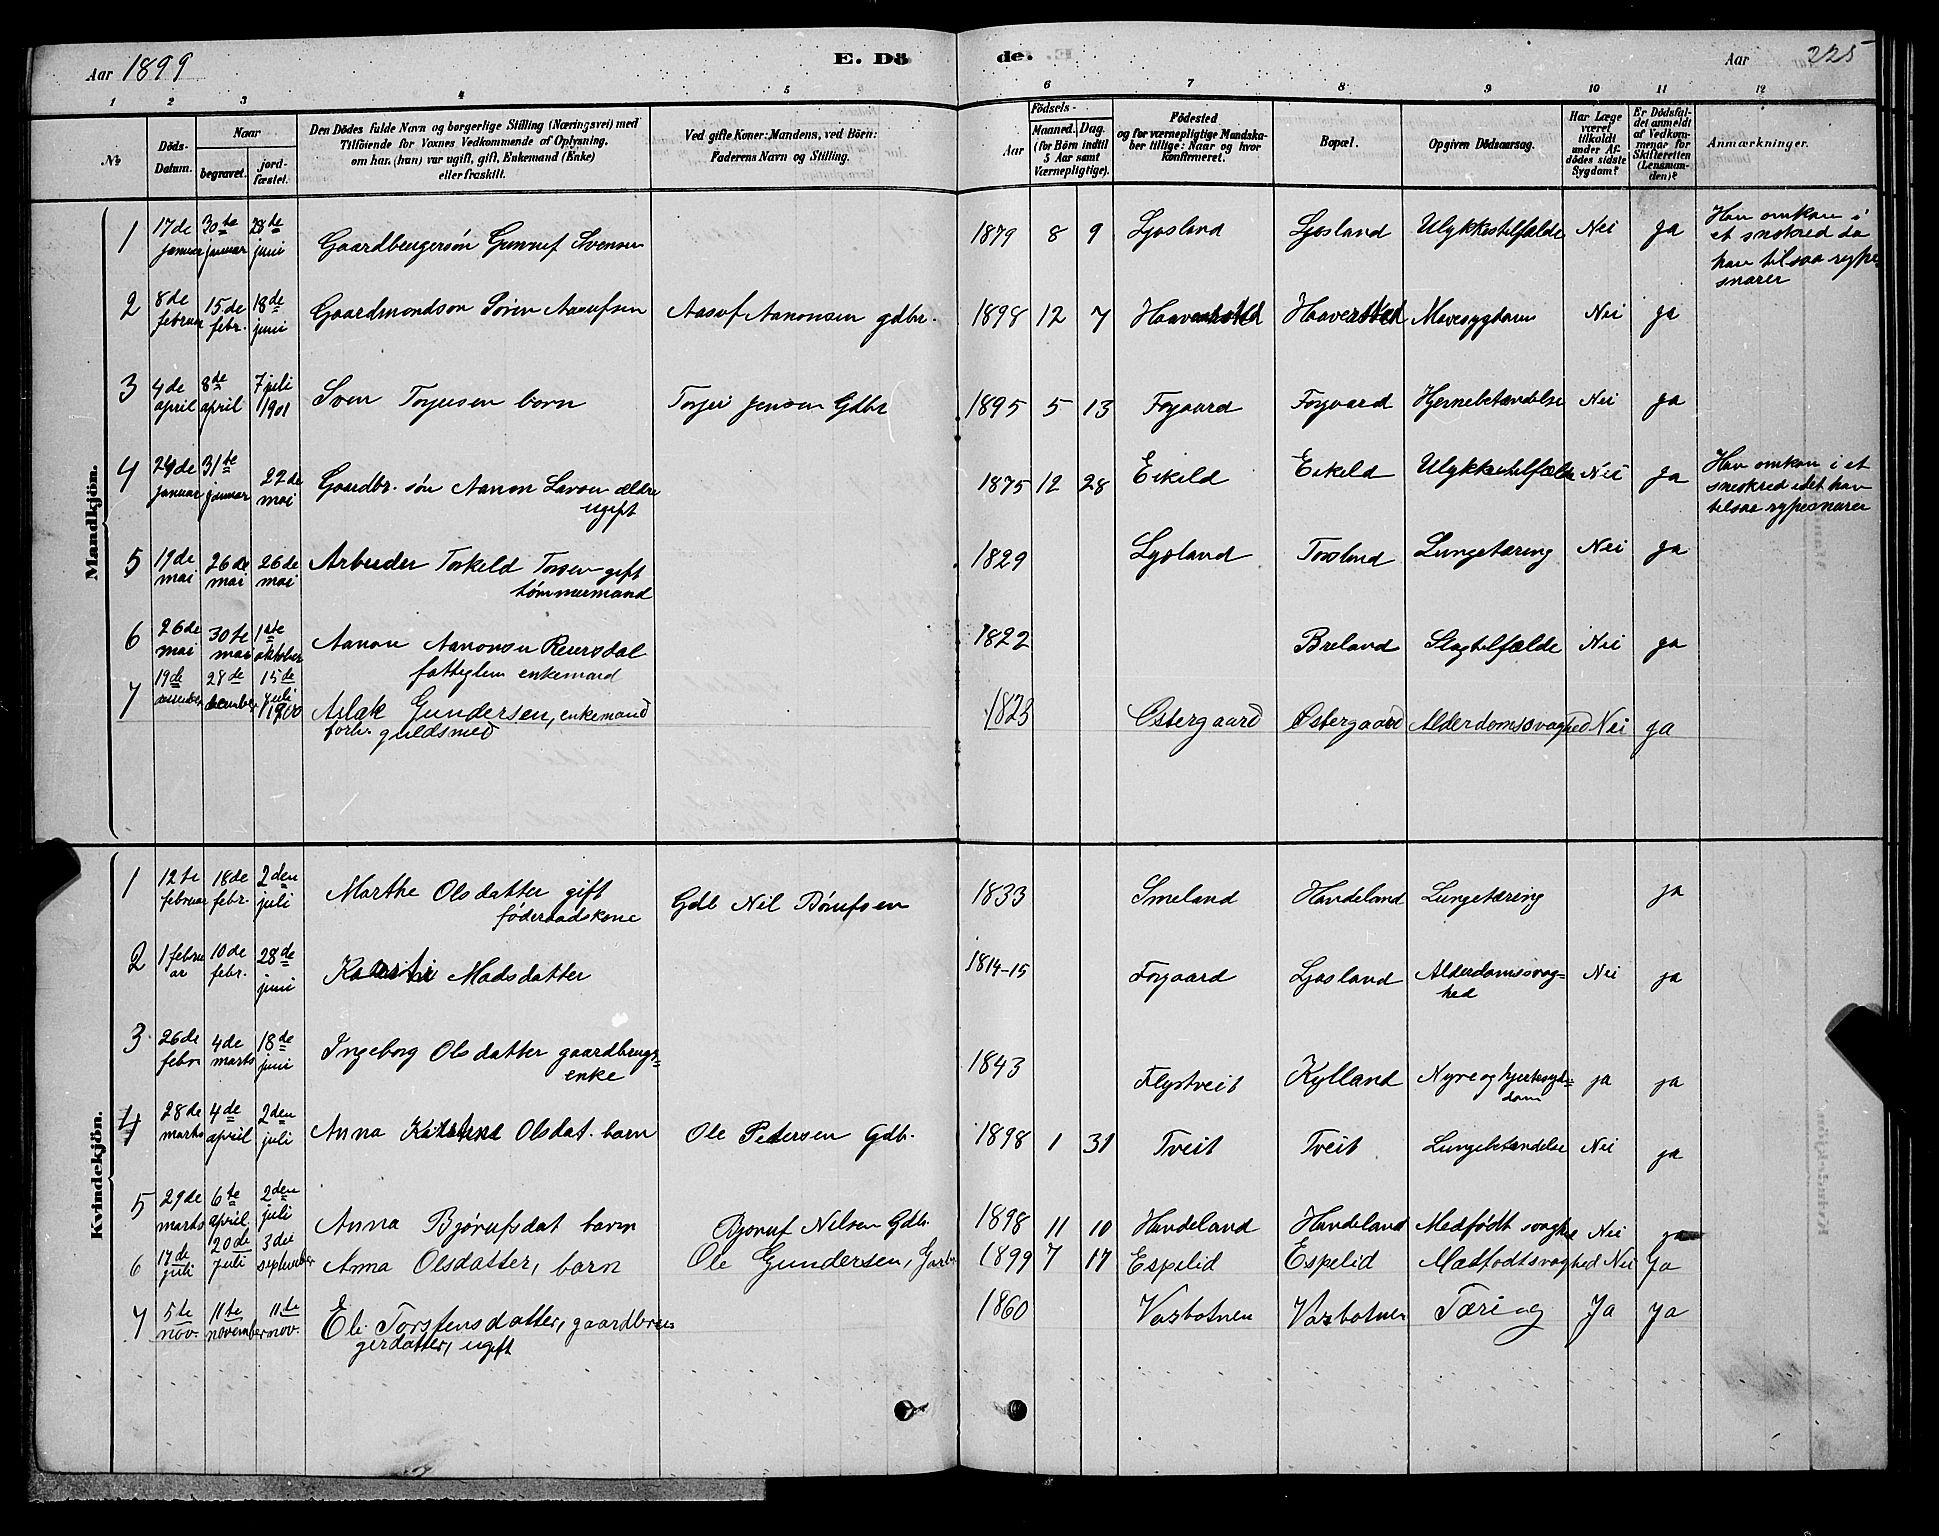 Aar 1899
E. Dö
de.
Aar 225
1 2 3 4 5 6 7 8 9 10 11 12
№
Döds-
Datum.
Naar
begravet.
jord-
fæstet.
Den Dödes fulde Navn og borgerlige Stilling (Næringsvei) med
Tilföiende for Voxnes Vedkommende af Oplysning,
om han (hun) var ugift, gift, Enkemand (Enke)
eller fraskilt.
Ved gifte Koner: Mandens, ved Börn:
Faderens Navn og Stilling.
Födsels-
Aar
Maaned.
Dag.
(for Börn indtil
5 Aar samt
Værnepligtige).
Födested
og for værnepligtige Mandska-
ber tillige: Naar og hvor
konfirmeret.
Bopæl.
Opgiven Dödsaarsag.
Har Læge
været
tilkaldt
under Af-
dödes sidste
Sygdom?
Er Dödsfal-
det anmeldt
af Vedkom-
mende for
Skifteretten
(Lensman-
den)?
Anmærkninger.
Mandkjön.
1 17de januar 30te januar 28de juni Gaardbrugersön Gunnuf Svensen 1879 8 9 Ljosland Ljosland Ulykkestilfælde Nei ja Han omkom i
et sneskred da
han tilsaa rype-
snarer
2 8de februar 15de febr. 18de juni Gaardmandsøn Sören Aasufsen Aasuf Aanonsen gdbr. 1898 12 7 Haaverstad Haaverstad Mavesygdom Nei ja
3 4de april 8de april 7 juli 1901 Sven Torjusen barn Torjus Jensen Gdbr 1895 5 13 Foigaard Foigaard Hjernebetændelse Nei ja
4 29de januar 31te januar 22de mai Gaardbr. sön Aanon Lavon ældre
ugift 1875 12 28 Eikild Eikild Ulykkestilfælde Nei ja Han omkom i et
sneskred idet han
tilsaa rypesnarer
5 19de mai 26de mai 26de mai Arbeider Torkeld Torsen gift
tømmermand 1829 Ljosland Tossland Lungetæring Nei ja
6 26de mai 30te mai 1ste oktober Aanon Aanonsen Reiersdal
fattiglem enkemand 1822 Breland Slagtilfælde Nei ja
7 19de december 28de december 15de Juli 1900 Aslak Gundersen, enkemand
forhv. guldsmed 1823 Østergaard Østergaard Alderdomssvaghed Nei ja
Kvindekjön.
1 12te februar 18de febr. 2den juli Marthe Olsdatter gift
föderaadskone Gdb Nil Börufsen 1833 Smeland Handeland Lungetæring ja
2 1 februar 10de febr. 28de juni Kirsti Madsdatter 1814-15 Foigaard Ljosland Alderdomssvag-
hed Nei ja
3 26de febr 4de marts 18de juni Ingeborg Olsdatter gaardbrugs-
enke 1843 Flystveit Kylland Nyre og hjertesyg-
dom ja ja
4 28de marts 4de april 2den juli Anna Katrine Olsdat. barn Ole Petersen Gdb. 1898 1 31 Tveit Tveit Lungebetændelse Nei ja
5 29de marts 6te april 2den juli Anna Bjørufsdat barn Bjoruf Nilsen Gdb. 1898 11 10 Handeland Handeland Medfødt svaghed Nei ja
6 17de juli 20de juli 3die september Anna Olsdatter, barn Ole Gundersen, Garbr 1899 7 17 Espelid Espelid Medfødtsvaghed Nei Ja
7 5te nov. 11te november 11te nov. Eli Torstensdatter, gaardbru-
gerdatter, ugift 1860 Vasbotnen Vasbotnen Tæring Ja ja